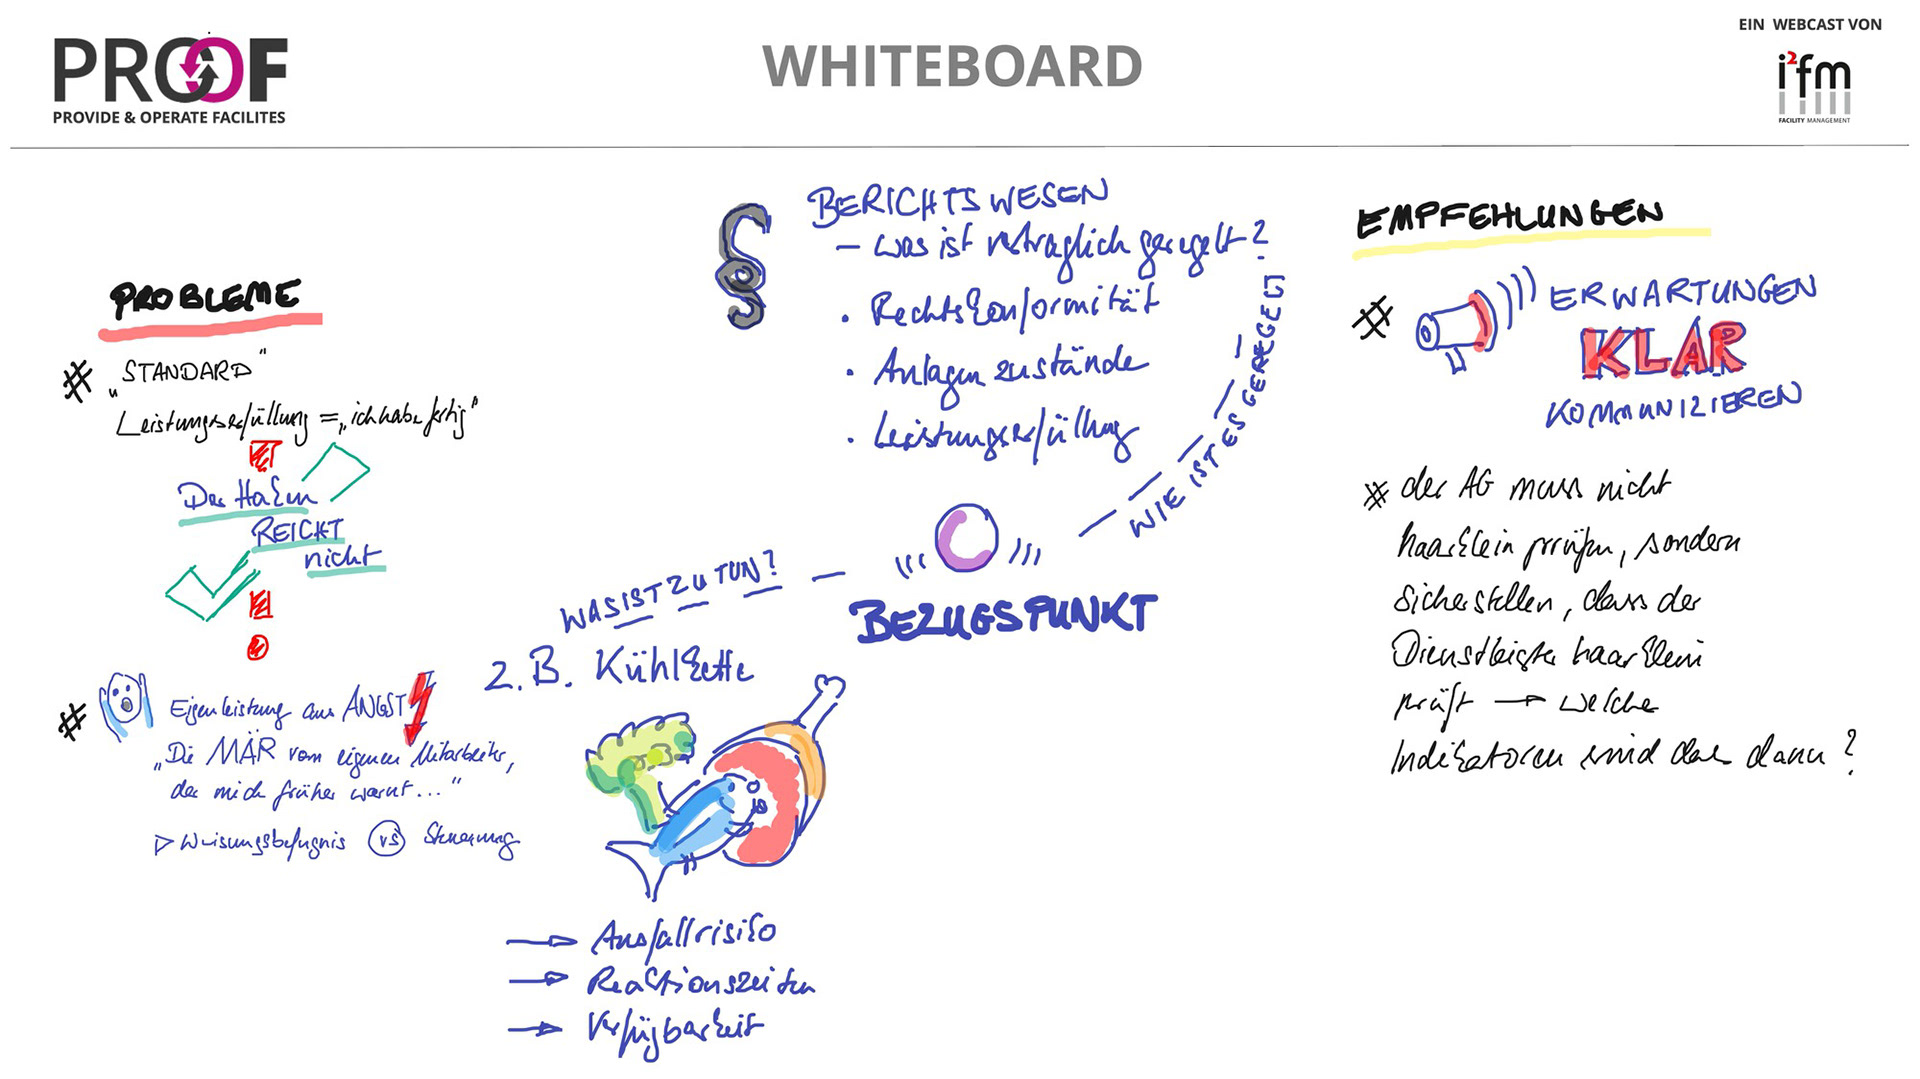 PROOF
PROVIDE & OPERATE FACILITES
WHITEBOARD
EIN WEBCAST VON
i²fm
FACILITY MANAGEMENT
PROBLEME
# „STANDARD“
Leistungserfüllung = „ich habe fertig“
Der Haken
REICHT
nicht
# Eigenleistung aus ANGST
„Die MÄR vom eigenen Mitarbeiter,
der mich früher warnt..."
▷ Weisungsbefugnis vs Steuerung
§ BERICHTSWESEN
– was ist vertraglich geregelt?
• Rechtskonformität
• Anlagenzustände
• Leistungserfüllung
WIE IST ES GEREGELT
BEZUGSPUNKT
WAS IST ZU TUN?
z.B. Kühlkette
→ Ausfallrisiko
→ Reaktionszeiten
→ Verfügbarkeit
EMPFEHLUNGEN
# ERWARTUNGEN
KLAR
KOMMUNIZIEREN
# der AG muss nicht
haarklein prüfen, sondern
sicherstellen, dass der
Dienstleister haarklein
prüft → welche
Indikatoren sind das dann?